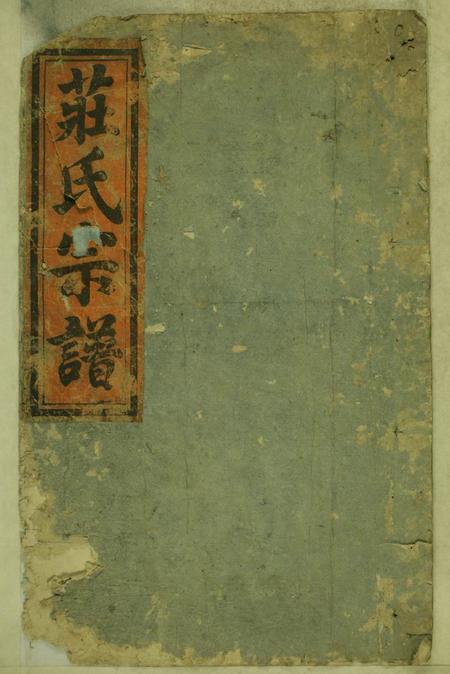 莊氏宗譜